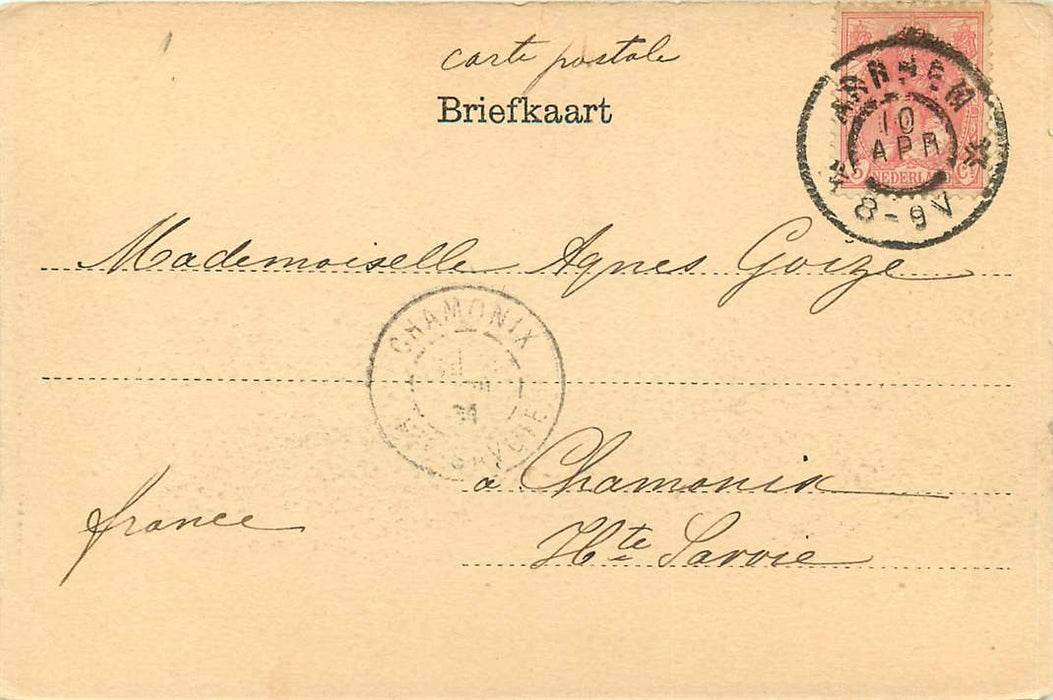 carte postale
Briefkaart
ARNHEM
10
APR
8-9V
5 NEDERLAND Ct
Mademoiselle Agnes Goize
CHAMONIX
SAVOIE
à Chamonix
france
Hte Savoie